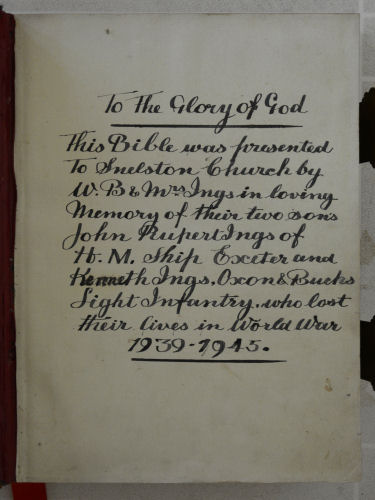 To The Glory of God
This Bible was presented
To Snelston Church by
W. B & Mrs Ings in loving
Memory of their two sons
John Rupert Ings of
H. M. Ship Exeter and
Kenneth Ings. Oxon & Bucks
Light Infantry. who lost
their lives in World War
1939-1945.